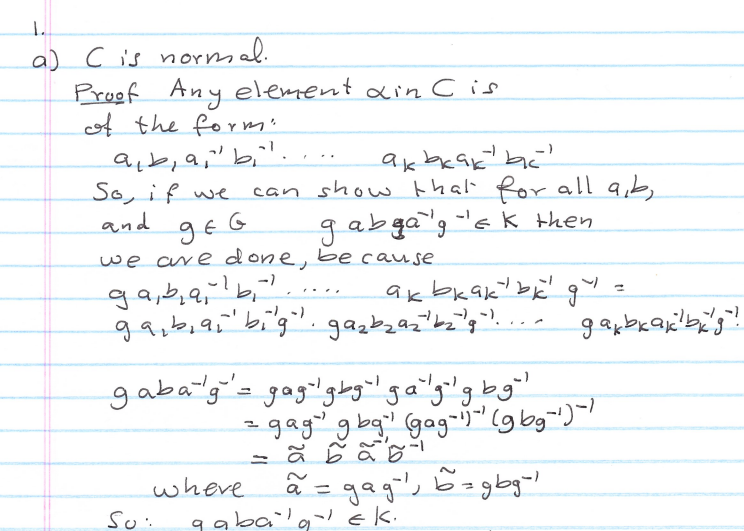 1.
a) C is normal.
Proof Any element α in C is
of the form:
a₁b₁a₁⁻¹b₁⁻¹..... aₖbₖaₖ⁻¹bₖ⁻¹
So, if we can show that for all a,b,
and g ∈ G g a b a⁻¹g⁻¹ ∈ K then
we are done, because
g a₁b₁a₁⁻¹b₁⁻¹..... aₖbₖaₖ⁻¹bₖ⁻¹ g⁻¹ =
g a₁b₁a₁⁻¹b₁⁻¹g⁻¹. g a₂b₂a₂⁻¹b₂⁻¹g⁻¹..... g aₖbₖaₖ⁻¹bₖ⁻¹g⁻¹.
g aba⁻¹g⁻¹ = gag⁻¹gbg⁻¹ga⁻¹g⁻¹gbg⁻¹
= gag⁻¹ gbg⁻¹ (gag⁻¹)⁻¹(gbg⁻¹)⁻¹
= ã b̃ ã⁻¹b̃⁻¹
where ã = gag⁻¹, b̃ = gbg⁻¹
So: gaba⁻¹g⁻¹ ∈ K.